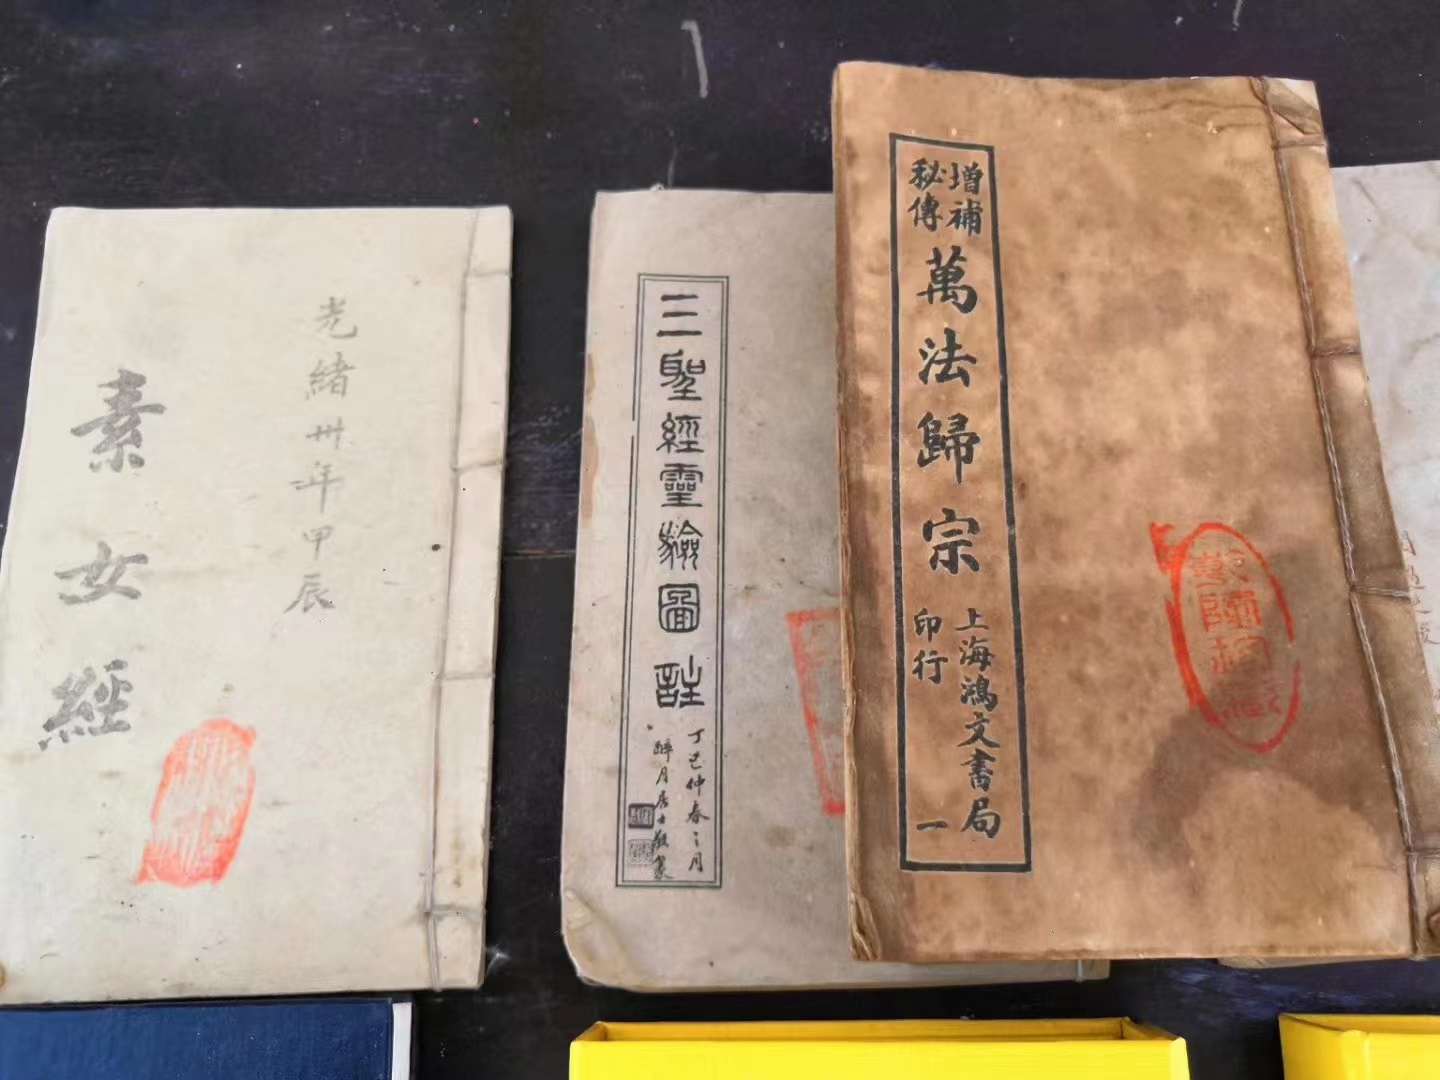 光緒卅年甲辰
素女經
三聖經靈驗圖註
丁巳仲春之月
醉月居士敬篆
增補
秘傳
萬法歸宗
上海鴻文書局
印行
一